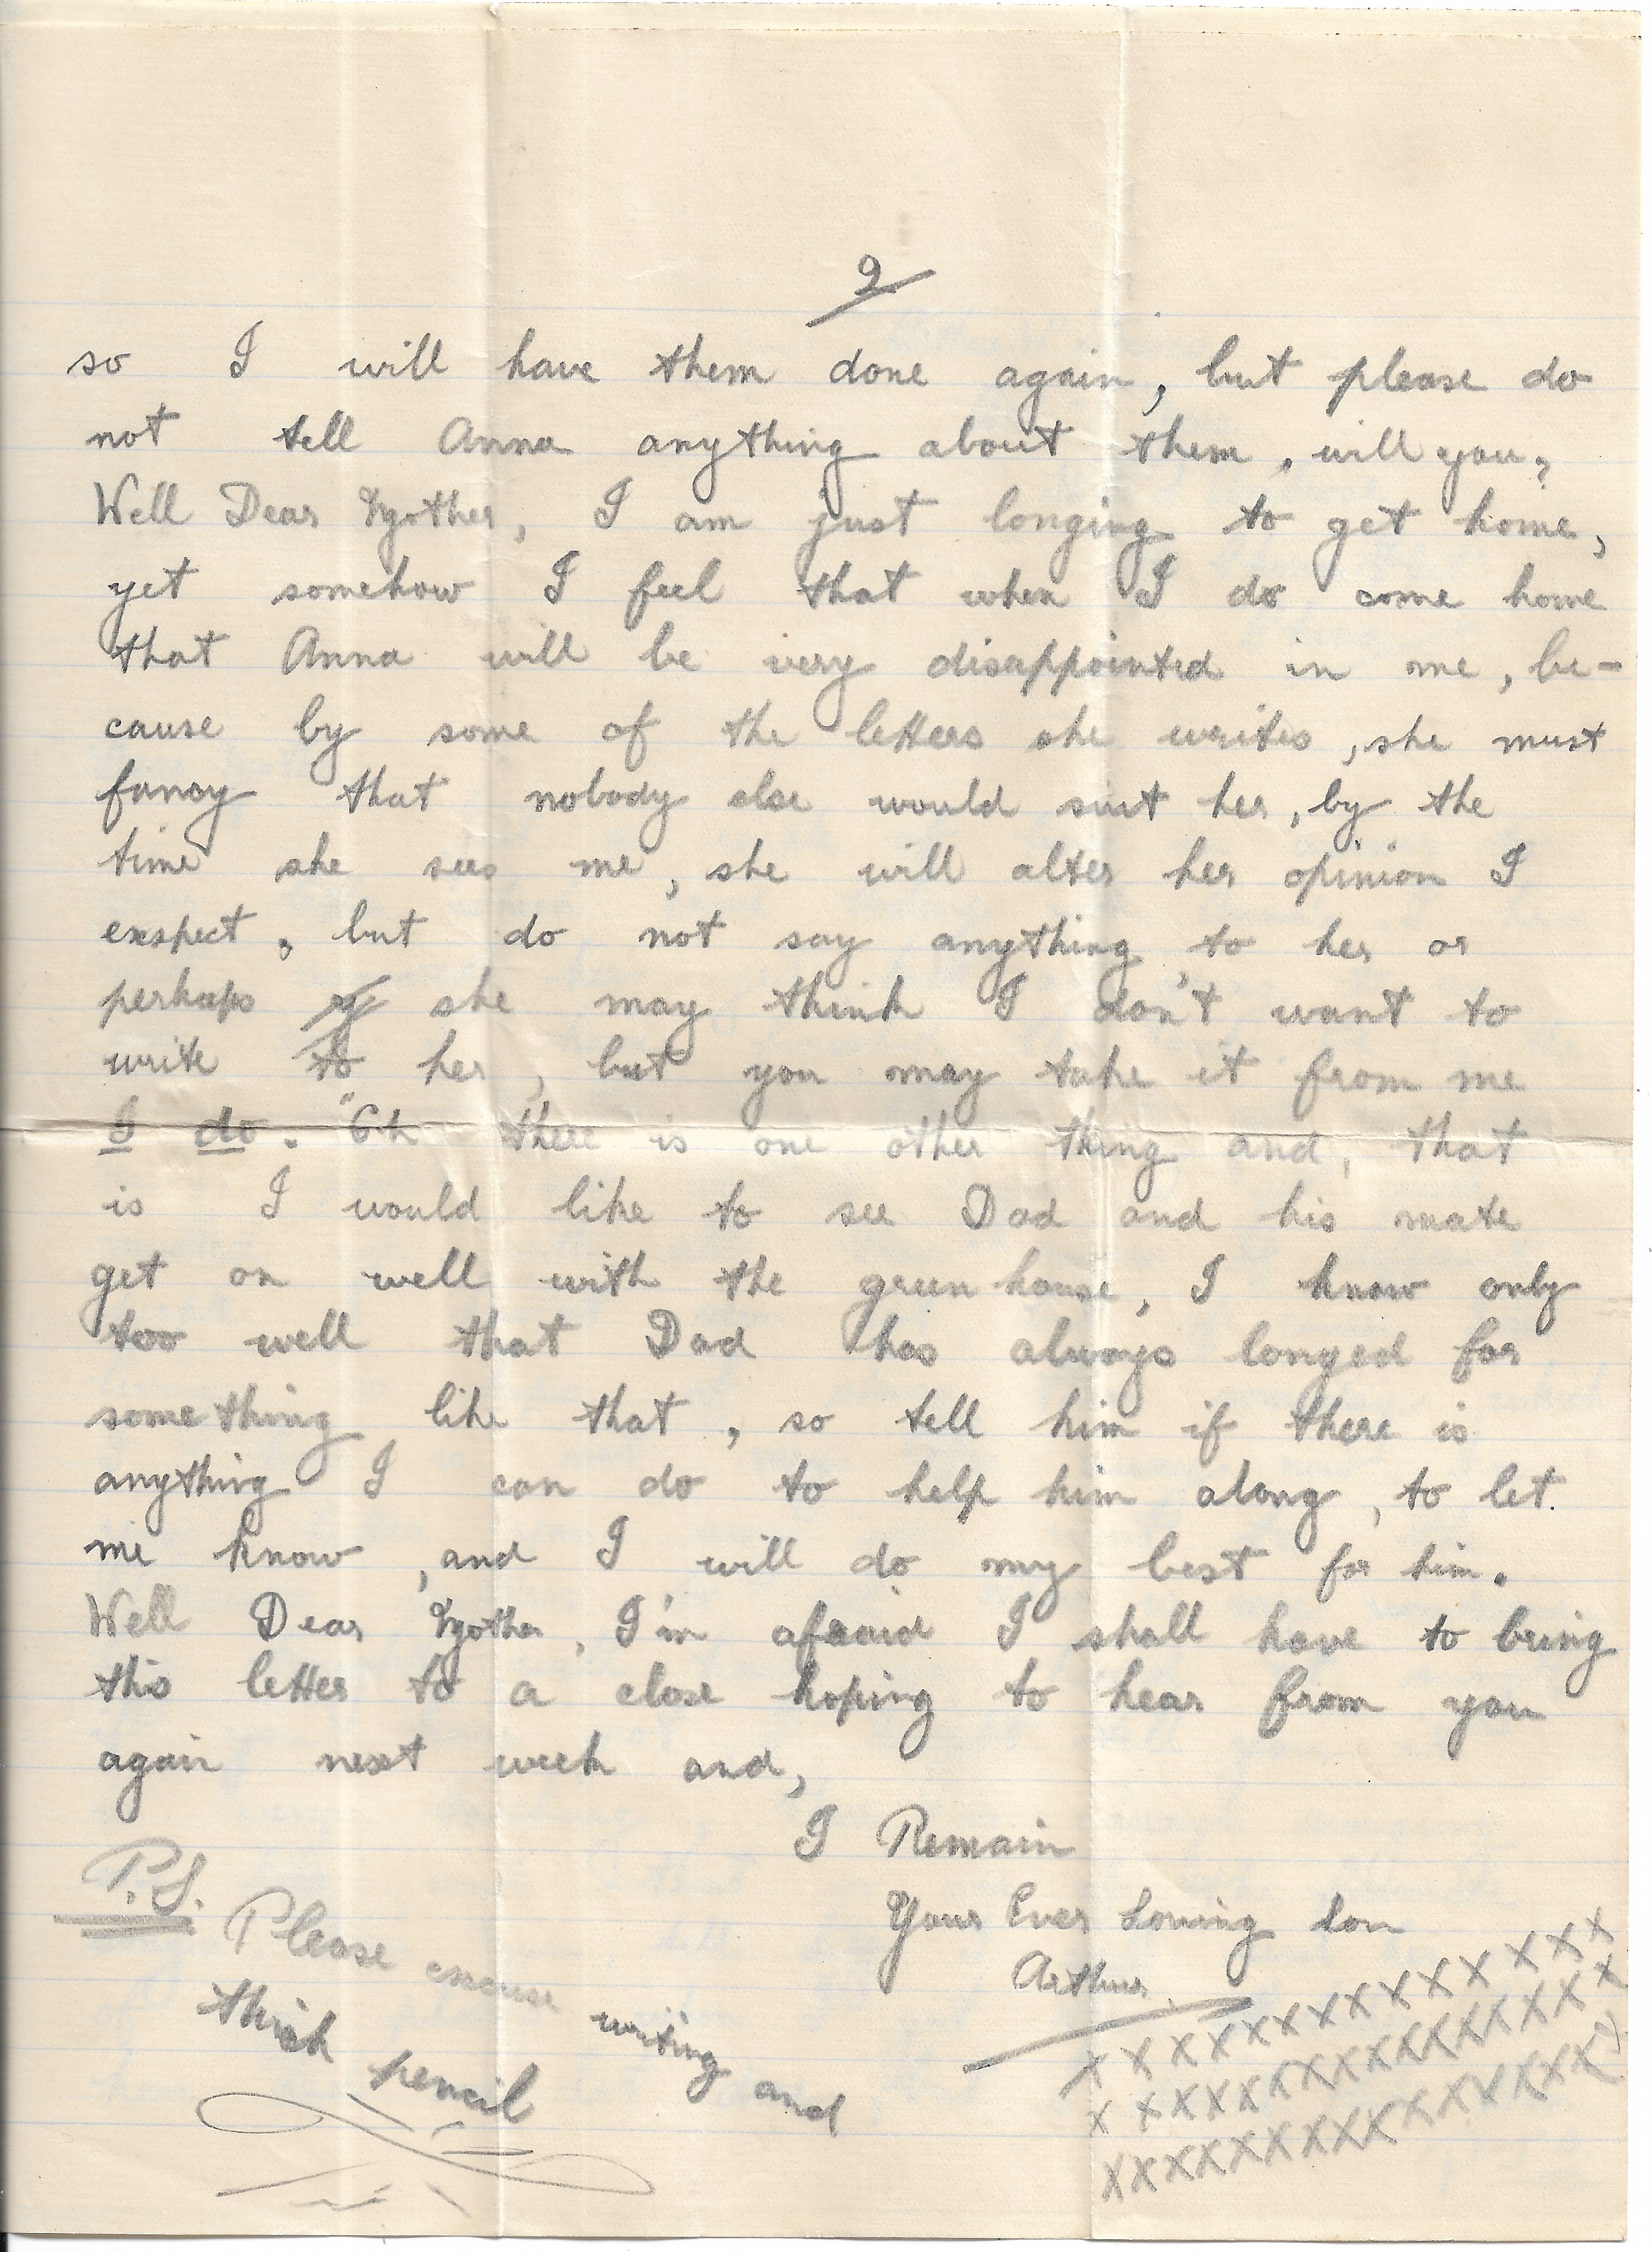 2
so I will have them done again, but please do
not tell Anna anything about them, will you,
Well Dear Mother, I am just longing to get home,
yet somehow I feel that when I do come home
that Anna will be very disappointed in me, be-
cause by some of the letters she writes, she must
fancy that nobody else would suit her, by the
time she sees me, she will alter her opinion I
exspect, but do not say anything to her or
perhaps she may think I don't want to
write to her, but you may take it from me
I do. "Oh there is one other thing and, that
is I would like to see Dad and his mate
get on well with the green house, I know only
too well that Dad has always longed for
something like that, so tell him if there is
anything I can do to help him along, to let
me know, and I will do my best for him.
Well Dear Mother, I'm afraid I shall have to bring
this letter to a close hoping to hear from you
again next week and,
I Remain
Your Ever Loving Son
Arthur.
P.S. Please excuse writing and
thick pencil
x x x x x x x x x x x x x
x x x x x x x x x x x x x x
x x x x x x x x x x x x x x x